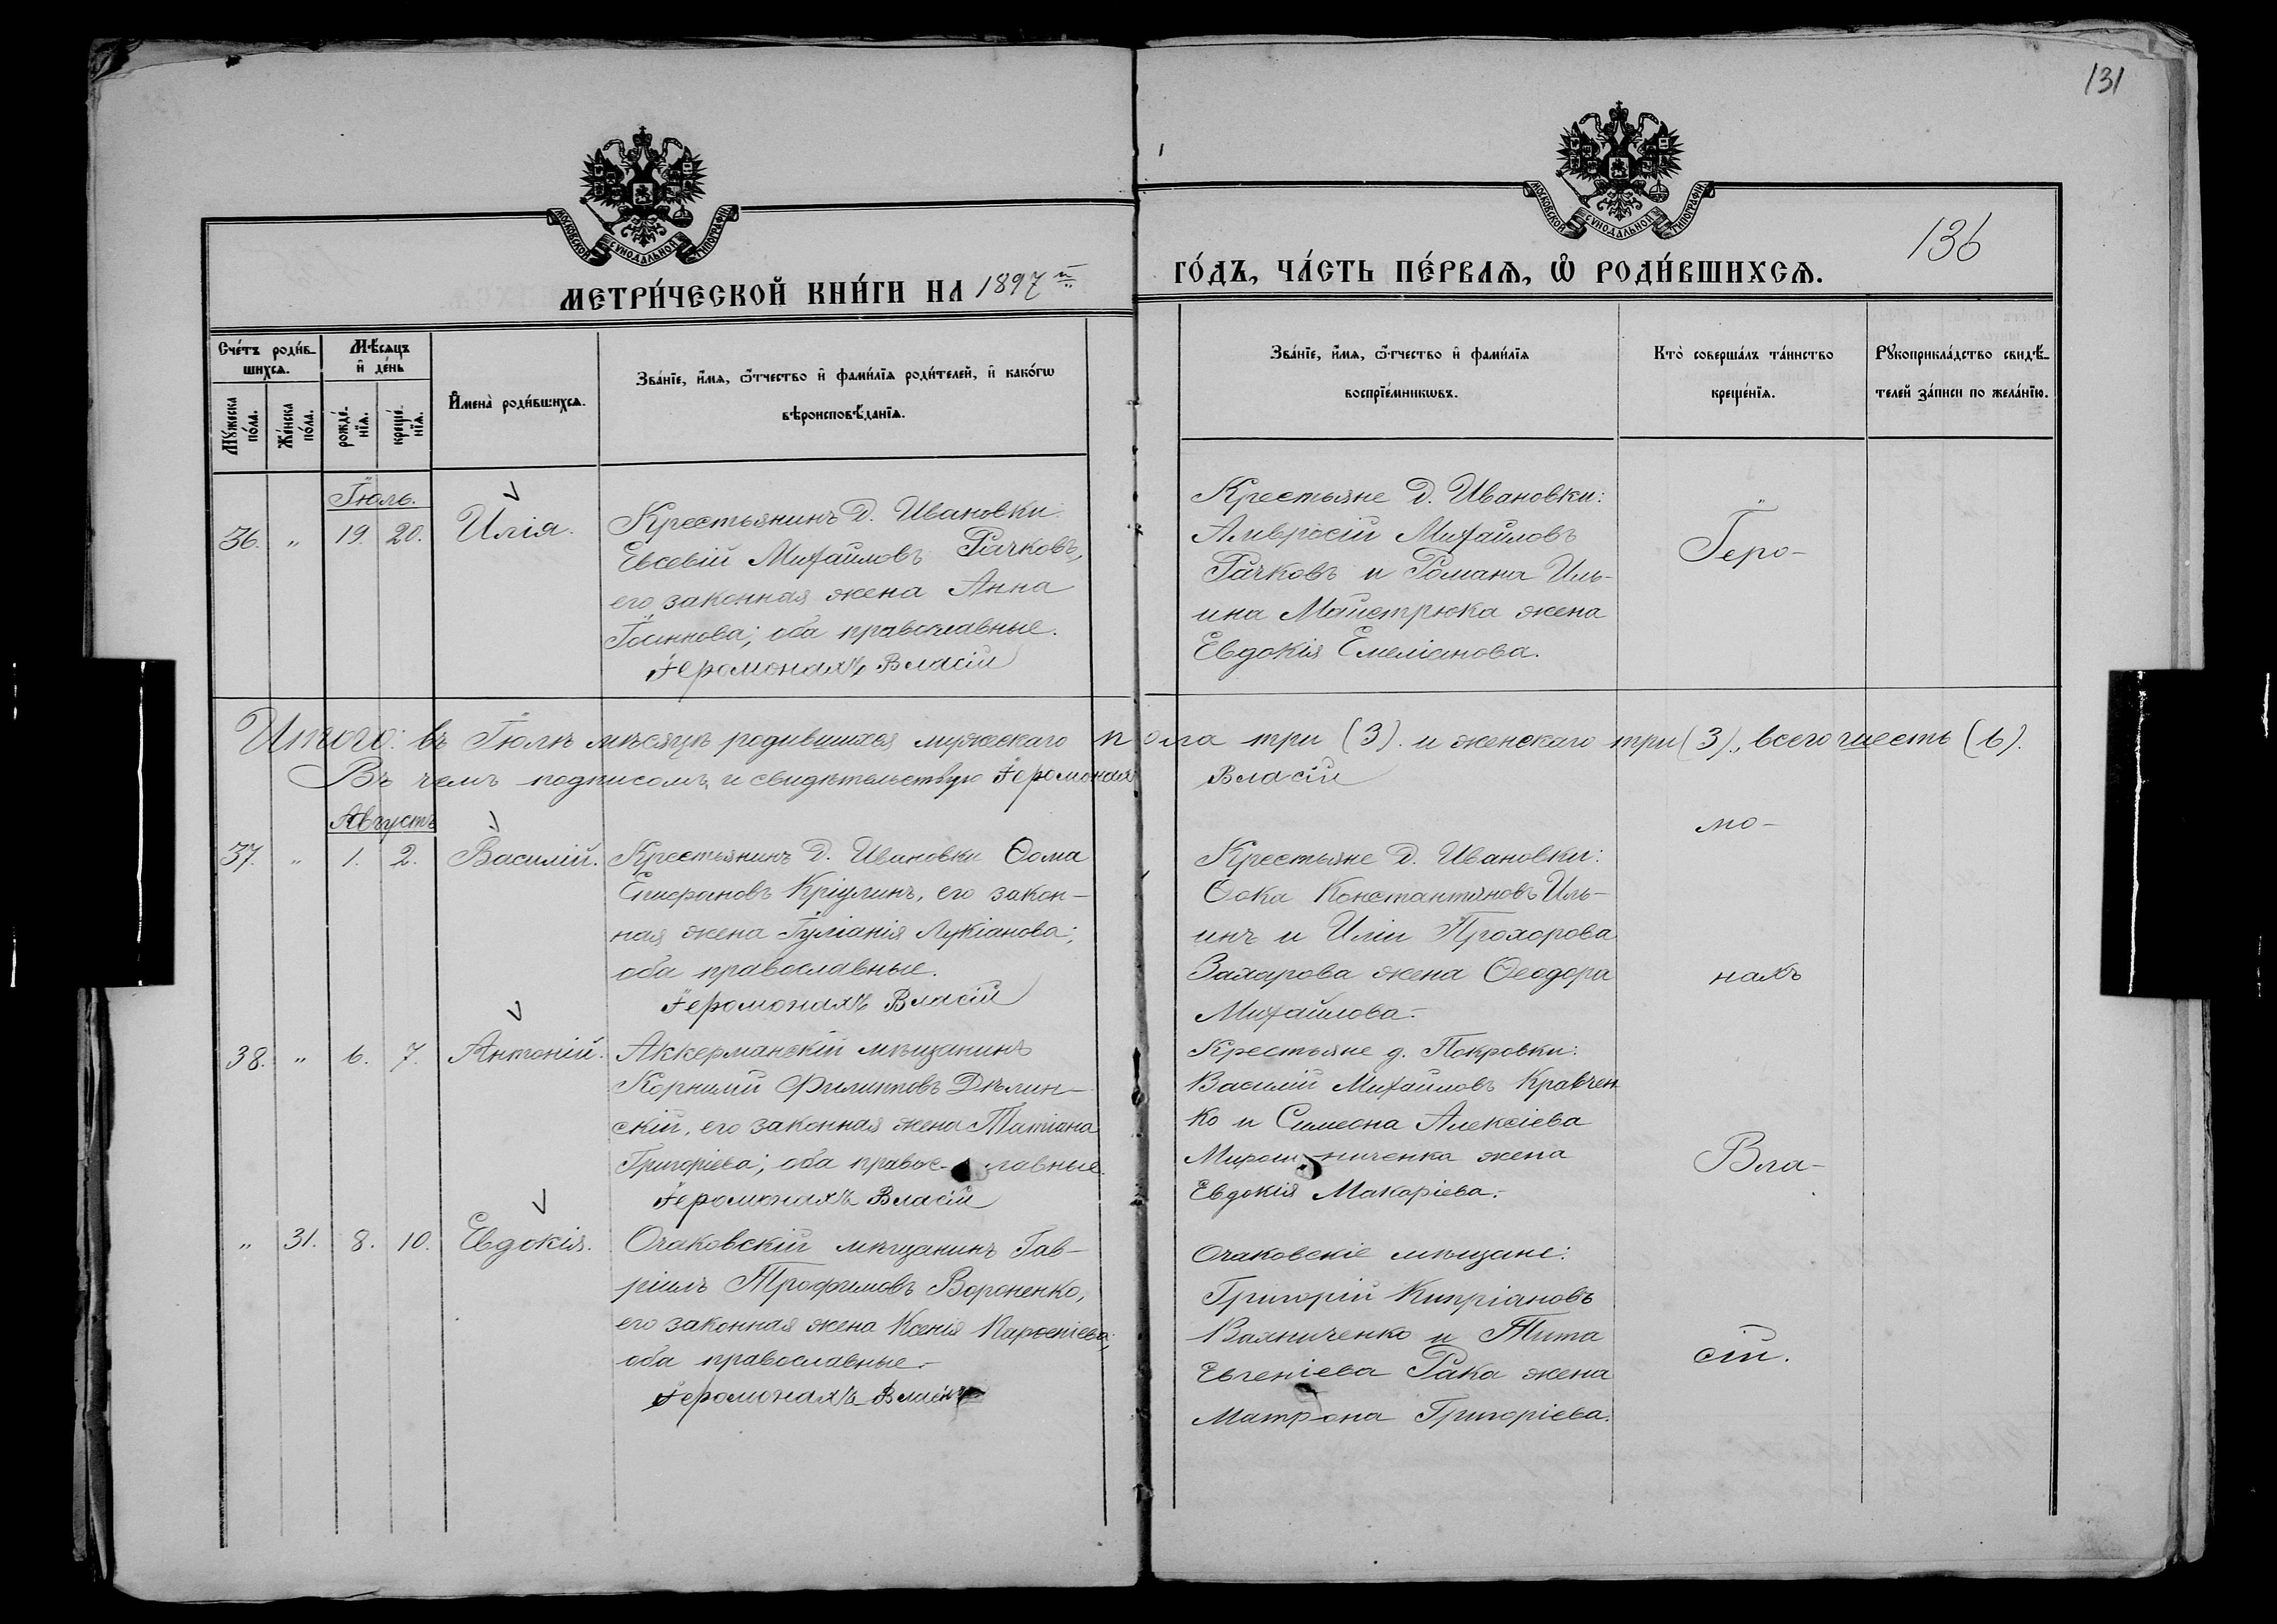 131
МОСКОВСКОЙ СѴНОДАЛЬНОЙ ТИПОГРАФІИ
МОСКОВСКОЙ СѴНОДАЛЬНОЙ ТИПОГРАФІИ
136
МЕТРИ́ЧЕСКОЙ КНИ́ГИ НА 1897й ГО́ДЪ, ЧА́СТЬ ПЕ́РВАѦ, Ѡ РОДИ́ВШИХСѦ.
Сче́тъ роди́в-
шихсѧ.
Мѣ́сѧцъ
и҆ де́нь
Му́жеска
по́ла.
Же́нска
по́ла.
рожде́-
нїѧ.
креще́-
нїѧ.
И҆мена̀ роди́вшихсѧ.
Зва́нїе, и҆́мѧ, ѻ҆́тчество и҆ фами́лїѧ роди́телей, и҆ како́гѡ
вѣроисповѣ́данїѧ.
Зва́нїе, и҆́мѧ, ѻ҆́тчество и҆ фами́лїѧ
воспрїе́мникѡвъ.
Кто̀ соверша́лъ та́инство
креще́нїѧ.
Рꙋкоприкла́дство свидѣ́-
телей за́писи по жела́нїю.
Іюль.
36. " 19. 20. Илія.
Крестьянинъ Д. Ивановки
Евсевій Михайловъ Рачковъ,
его законная жена Анна
Іоаннова; оба православные.
Іеромонахъ Власій
Крестьяне Д. Ивановки:
Амвросій Михайловъ
Рачковъ и Романа Иль-
ина Майстрюка жена
Евдокія Емеліанова.
Іеро-
Итого: въ Іюлѣ мѣсяцѣ родившихся мужескаго пола три (3). и женскаго три (3)., всего шесть (6).
Въ чемъ подписомъ и свидѣтельствую Іеромонахъ Власій
Августъ
37. " 1. 2. Василій.
Крестьянинъ Д. Ивановки Ѳома
Епифановъ Кріулинъ, его закон-
ная жена Іуліанія Лукіанова;
оба православные.
Іеромонахъ Власій
Крестьяне Д. Ивановки:
Фока Константиновъ Иль-
инъ и Иліи Прохорова
Захарова жена Ѳеодора
Михайлова.-
мо-
нахъ
38. " 6. 7. Антоній.
Аккерманскій мѣщанинъ
Корнилій Филипповъ Дѣлин-
скій, его законная жена Татіана
Григоріева; оба правос- лавные.
Іеромонахъ Власій
Крестьяне д. Покровки:
Василій Михайловъ Кравчен-
ко и Симеона Алексіева
Мирошниченка жена
Евдокія Макаріева.-
Вла-
" 31. 8. 10. Евдокія.
Очаковскій мѣщанинъ Гав-
ріилъ Трофимовъ Вороненко,
его законная жена Ксенія Парѳеніева;
оба православные.-
Іеромонахъ Власій
Очаковскіе мѣщане:
Григорій Кипріановъ
Вахниченко и Тита
Евгеніева Рака жена
Матрона Григоріева.
сій.